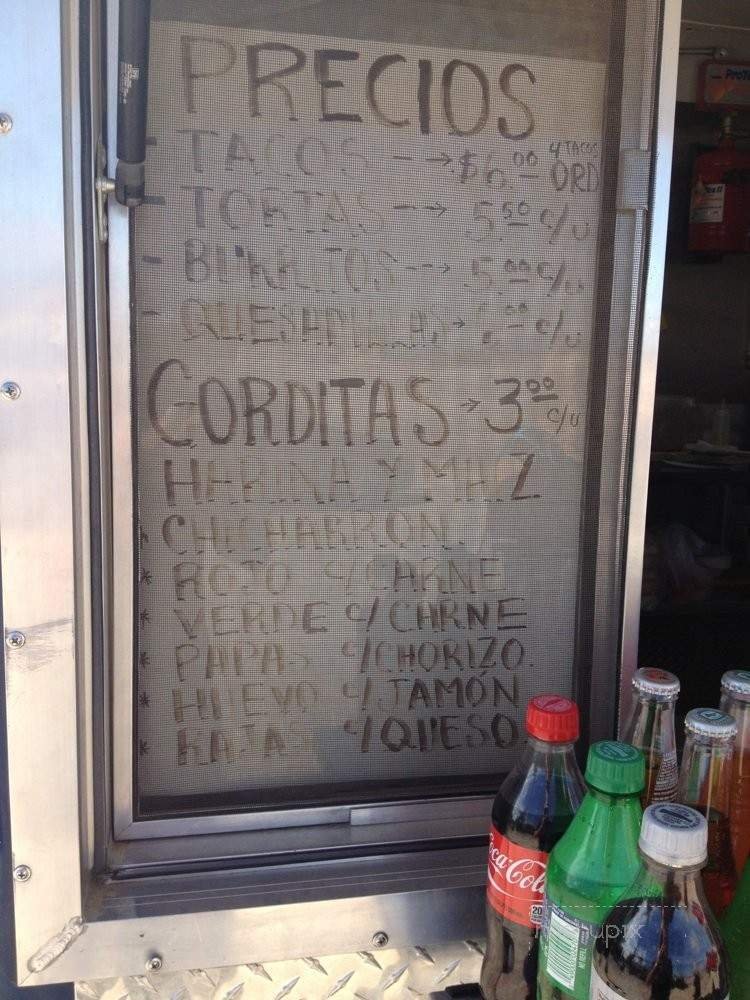 PRECIOS
4 TACOS
- TACOS --→ $6.00 ORD
- TORTAS --→ 5.50 c/u
- BURRITOS --→ 5.00 c/u
- QUESADILLAS → .00 c/u
GORDITAS → 3.00 c/u
HARINA Y MAIZ
* CHICHARRON.
* ROJO C/CARNE
* VERDE C/CARNE
* PAPAS C/CHORIZO.
* HUEVO C/JAMÓN
* RAJAS C/QUESO.
Coca-Cola
20